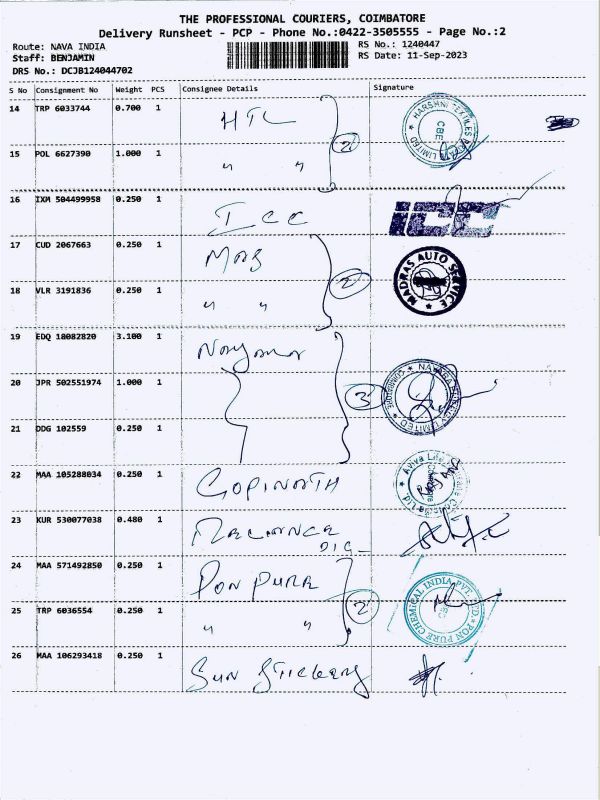 THE PROFESSIONAL COURIERS, COIMBATORE
Delivery Runsheet - PCP - Phone No.:0422-3505555 - Page No.:2
Route: NAVA INDIA RS No.: 1240447
Staff: BENJAMIN RS Date: 11-Sep-2023
DRS No.: DCJB124044702
S No Consignment No Weight PCS Consignee Details Signature
14 TRP 6033744 0.700 1 HTL
HARSHNI TEXTILES LIMITED CBE
2
15 POL 6627390 1.000 1 " "
16 IXM 504499958 0.250 1 ICC ICC
17 CUD 2067663 0.250 1 MAS
MADRAS AUTO SERVICE
2
18 VLR 3191836 0.250 1 " "
19 EDQ 18082820 3.100 1 Nayana
20 JPR 502551974 1.000 1
3
LIMITED
21 DDG 102559 0.250 1
22 MAA 105288034 0.250 1 GOPINATH
Aviva Life Ltd.
23 KUR 530077038 0.480 1 RELIANCE
DIG
24 MAA 571492850 0.250 1 PON PURE
2
PON PURE CHEMICAL INDIA PVT. LTD
25 TRP 6036554 0.250 1 " "
26 MAA 106293418 0.250 1 SUN STICKERS